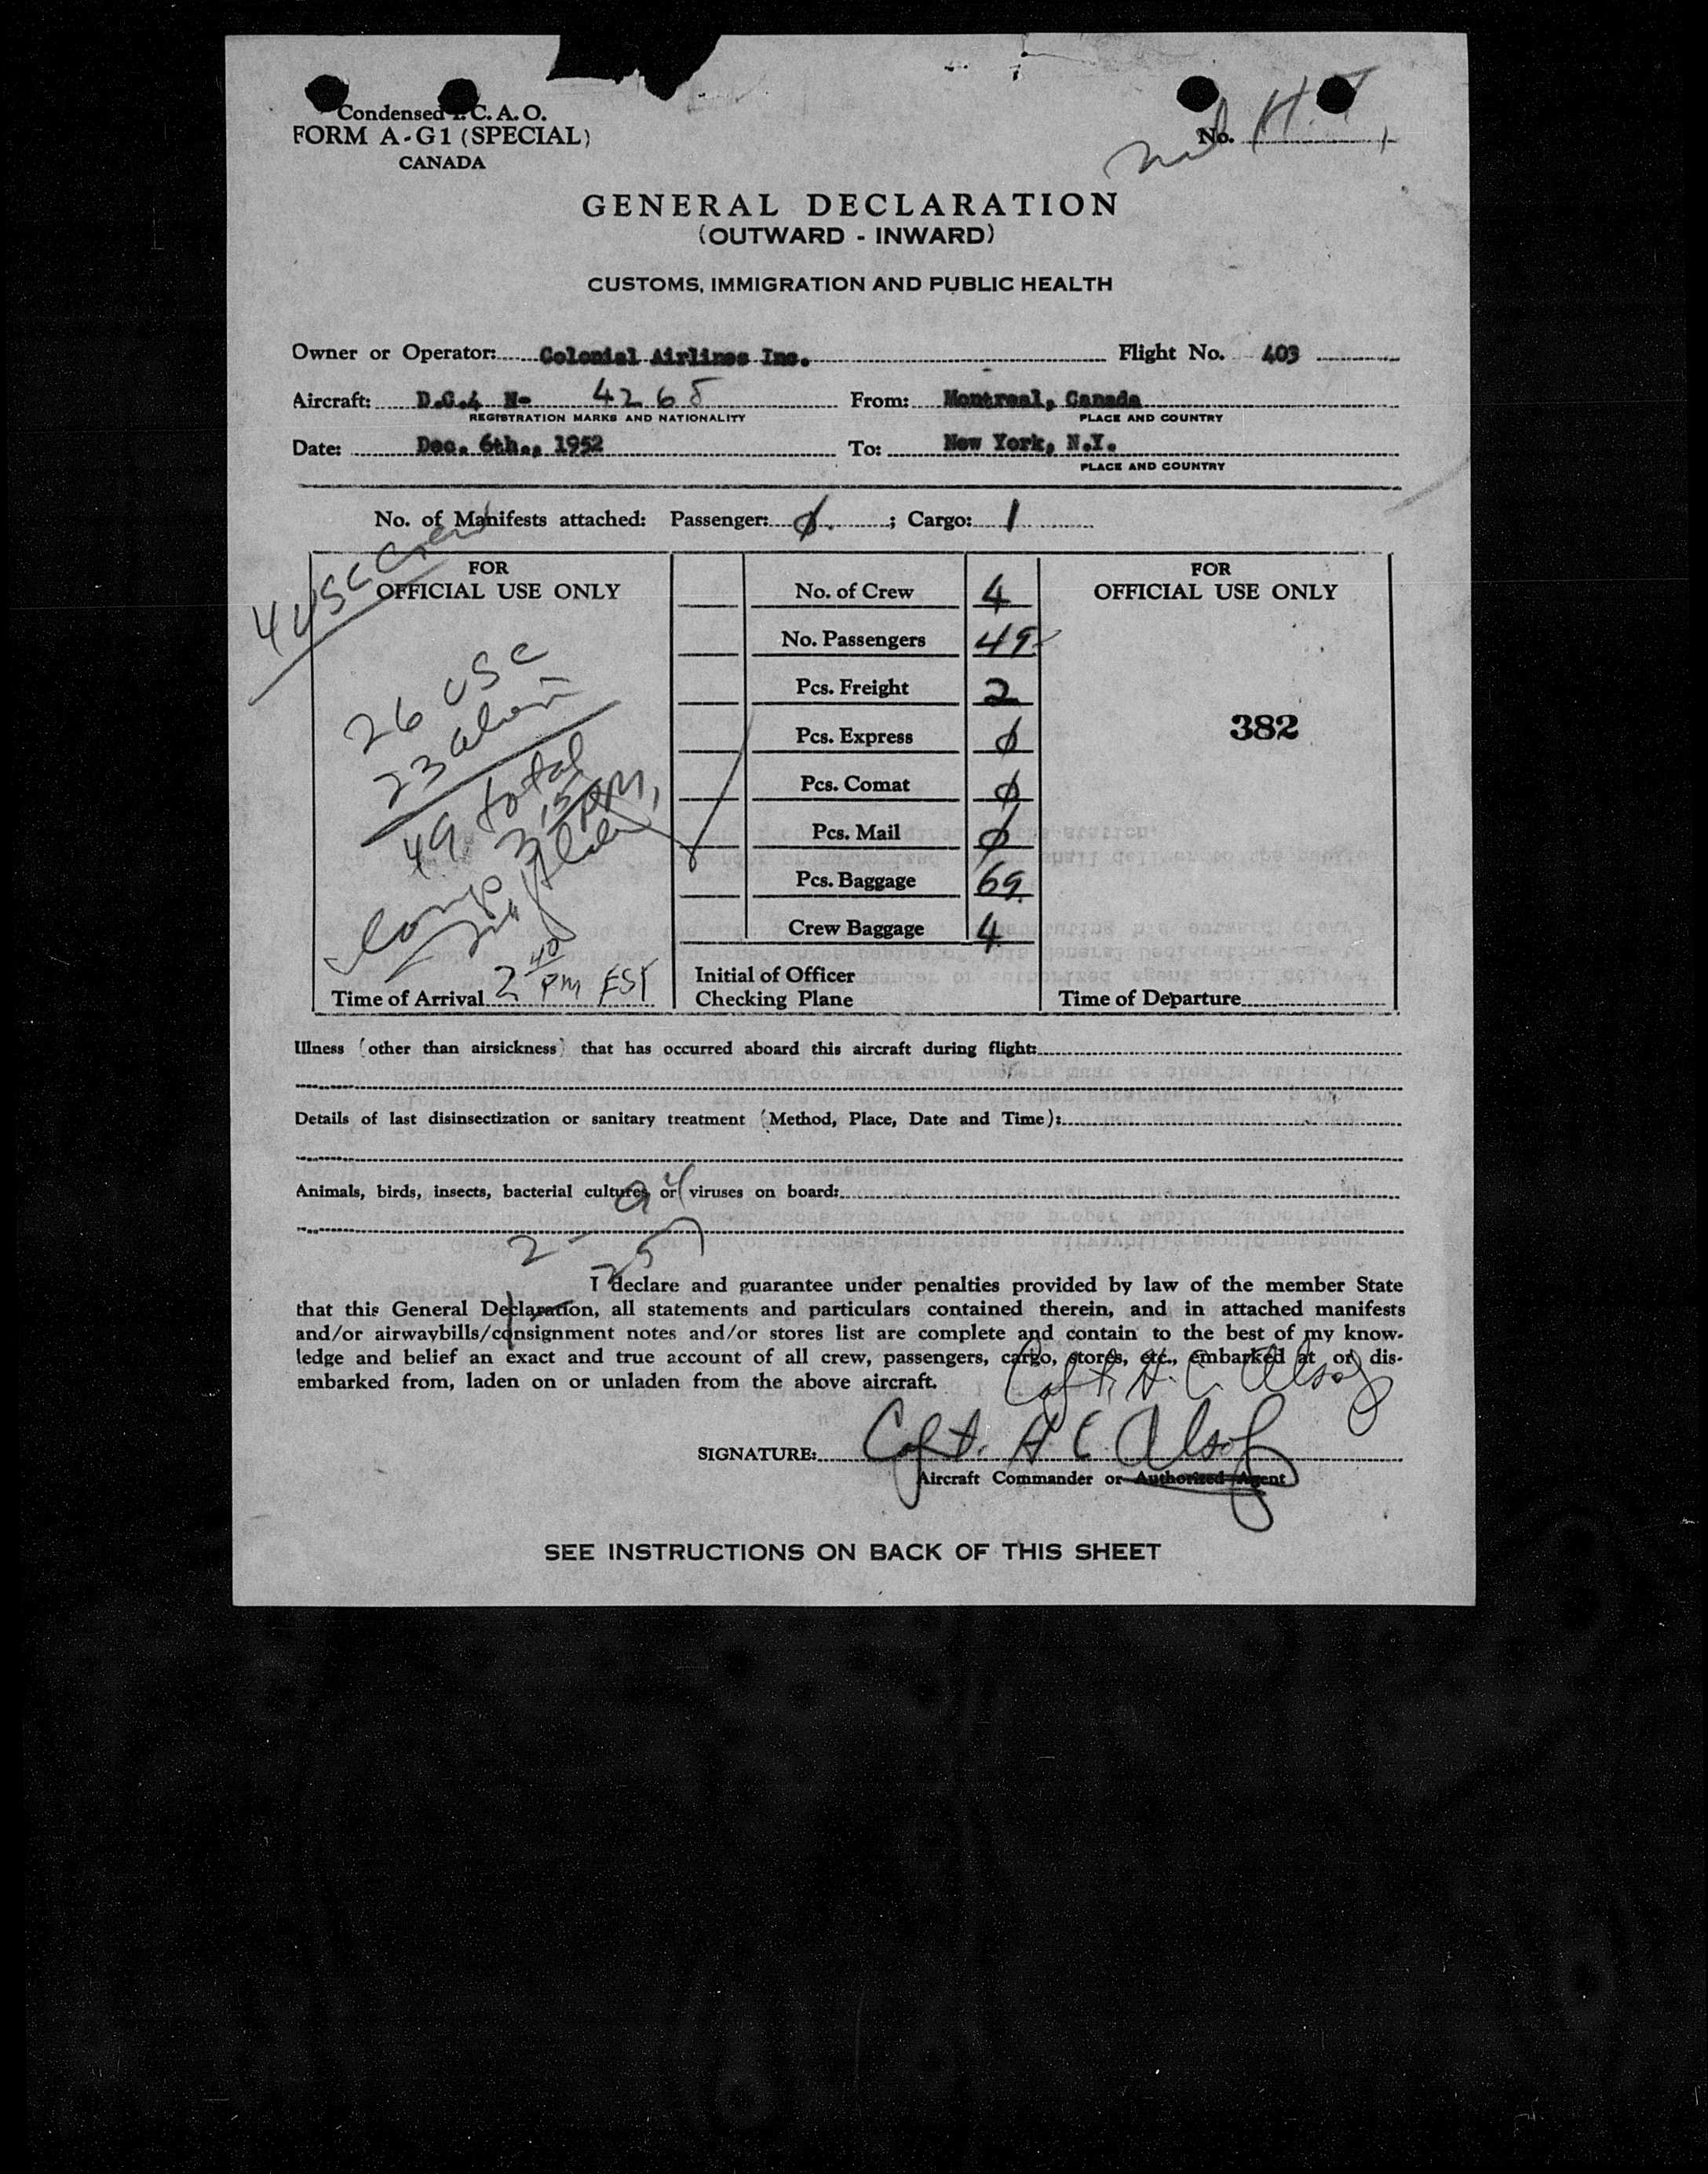 Condensed I.C.A.O.
FORM A-G1 (SPECIAL)
CANADA
No.
GENERAL DECLARATION
(OUTWARD - INWARD)
CUSTOMS, IMMIGRATION AND PUBLIC HEALTH
Owner or Operator: Colonial Airlines Inc. Flight No. 403
Aircraft: D.C.4 N- 4265 From: Montreal, Canada
REGISTRATION MARKS AND NATIONALITY PLACE AND COUNTRY
Date: Dec. 6th., 1952 To: New York, N.Y.
PLACE AND COUNTRY
No. of Manifests attached: Passenger: 0 ; Cargo: 1
4 USC Crew
FOR
OFFICIAL USE ONLY
26 USC
23 alien
49 total
3,15 PM,
Time of Arrival 2 40 PM EST
No. of Crew 4
No. Passengers 49
Pcs. Freight 2
Pcs. Express 0
Pcs. Comat 0
Pcs. Mail 0
Pcs. Baggage 69
Crew Baggage 4
Initial of Officer
Checking Plane
FOR
OFFICIAL USE ONLY
382
Time of Departure
Illness (other than airsickness) that has occurred aboard this aircraft during flight:
Details of last disinsectization or sanitary treatment (Method, Place, Date and Time):
Animals, birds, insects, bacterial cultures or viruses on board:
I declare and guarantee under penalties provided by law of the member State
that this General Declaration, all statements and particulars contained therein, and in attached manifests
and/or airwaybills/consignment notes and/or stores list are complete and contain to the best of my know-
ledge and belief an exact and true account of all crew, passengers, cargo, stores, etc., embarked at or dis-
embarked from, laden on or unladen from the above aircraft.
Capt. H. C. Alsop
SIGNATURE: Capt. H C Alsop
Aircraft Commander or Authorized Agent
SEE INSTRUCTIONS ON BACK OF THIS SHEET